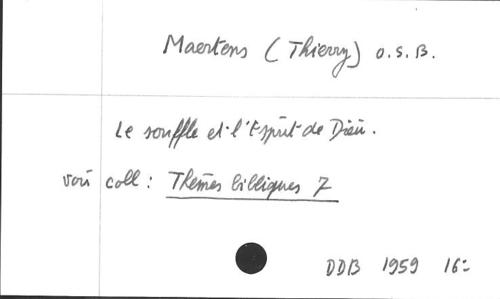 Maertens (Thierry) O.S.B.
Le souffle et l'Esprit de Dieu.
voir coll : Thèmes bibliques 7
DDB 1959 16=